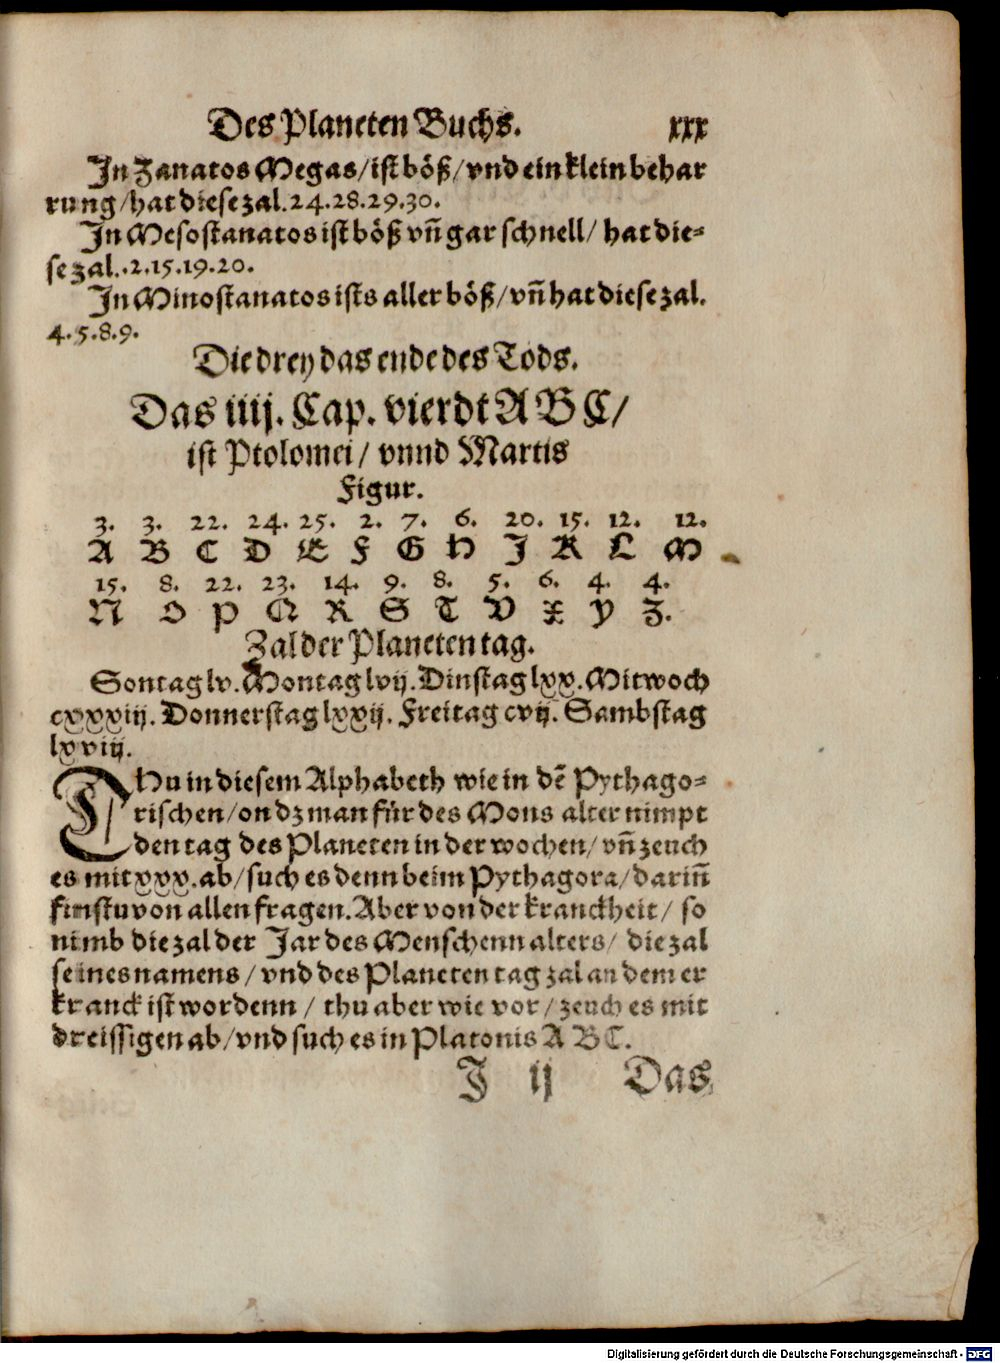 Des Planeten Buchs. xxx
In Zanatos Megas/ist böß/vnd ein klein behar
rung/hat diese zal.24.28.29.30.
In Mesostanatos ist böß vñ gar schnell/ hat die-
se zal..2.15.19.20.
In Minostanatos ists aller böß/vñ hat diese zal.
4.5.8.9.
Die drey das ende des Tods.
Das iiij. Cap. vierdt A B C/
ist Ptolomei/ vnnd Martis
Figur.
3. 3. 22. 24. 25. 2. 7. 6. 20. 15. 12. 12.
A B C D E F G H J K L M
15. 8. 22. 23. 14. 9. 8. 5. 6. 4. 4.
N O P Q R S T V X Y Z.
Zal der Planeten tag.
Sontag lv. Montag lvij. Dinstag lxx. Mitwoch
cxxxiij. Donnerstag lxxij. Freitag cvij. Sambstag
lxviij.
THu in diesem Alphabeth wie in dē Pythago-
rischen/on dz man für des Mons alter nimpt
den tag des Planeten in der wochen/ vñ zeuch
es mit xxx. ab/such es denn beim Pythagora/darinñ
finstu von allen fragen. Aber von der kranckheit/ so
nimb die zal der Jar des Menschenn alters/ die zal
seines namens/ vnd des Planeten tag zal an dem er
kranck ist wordenn/ thu aber wie vor/ zeuch es mit
dreissigen ab/vnd such es in Platonis A B C.
J ij Das
Digitalisierung gefördert durch die Deutsche Forschungsgemeinschaft - DFG